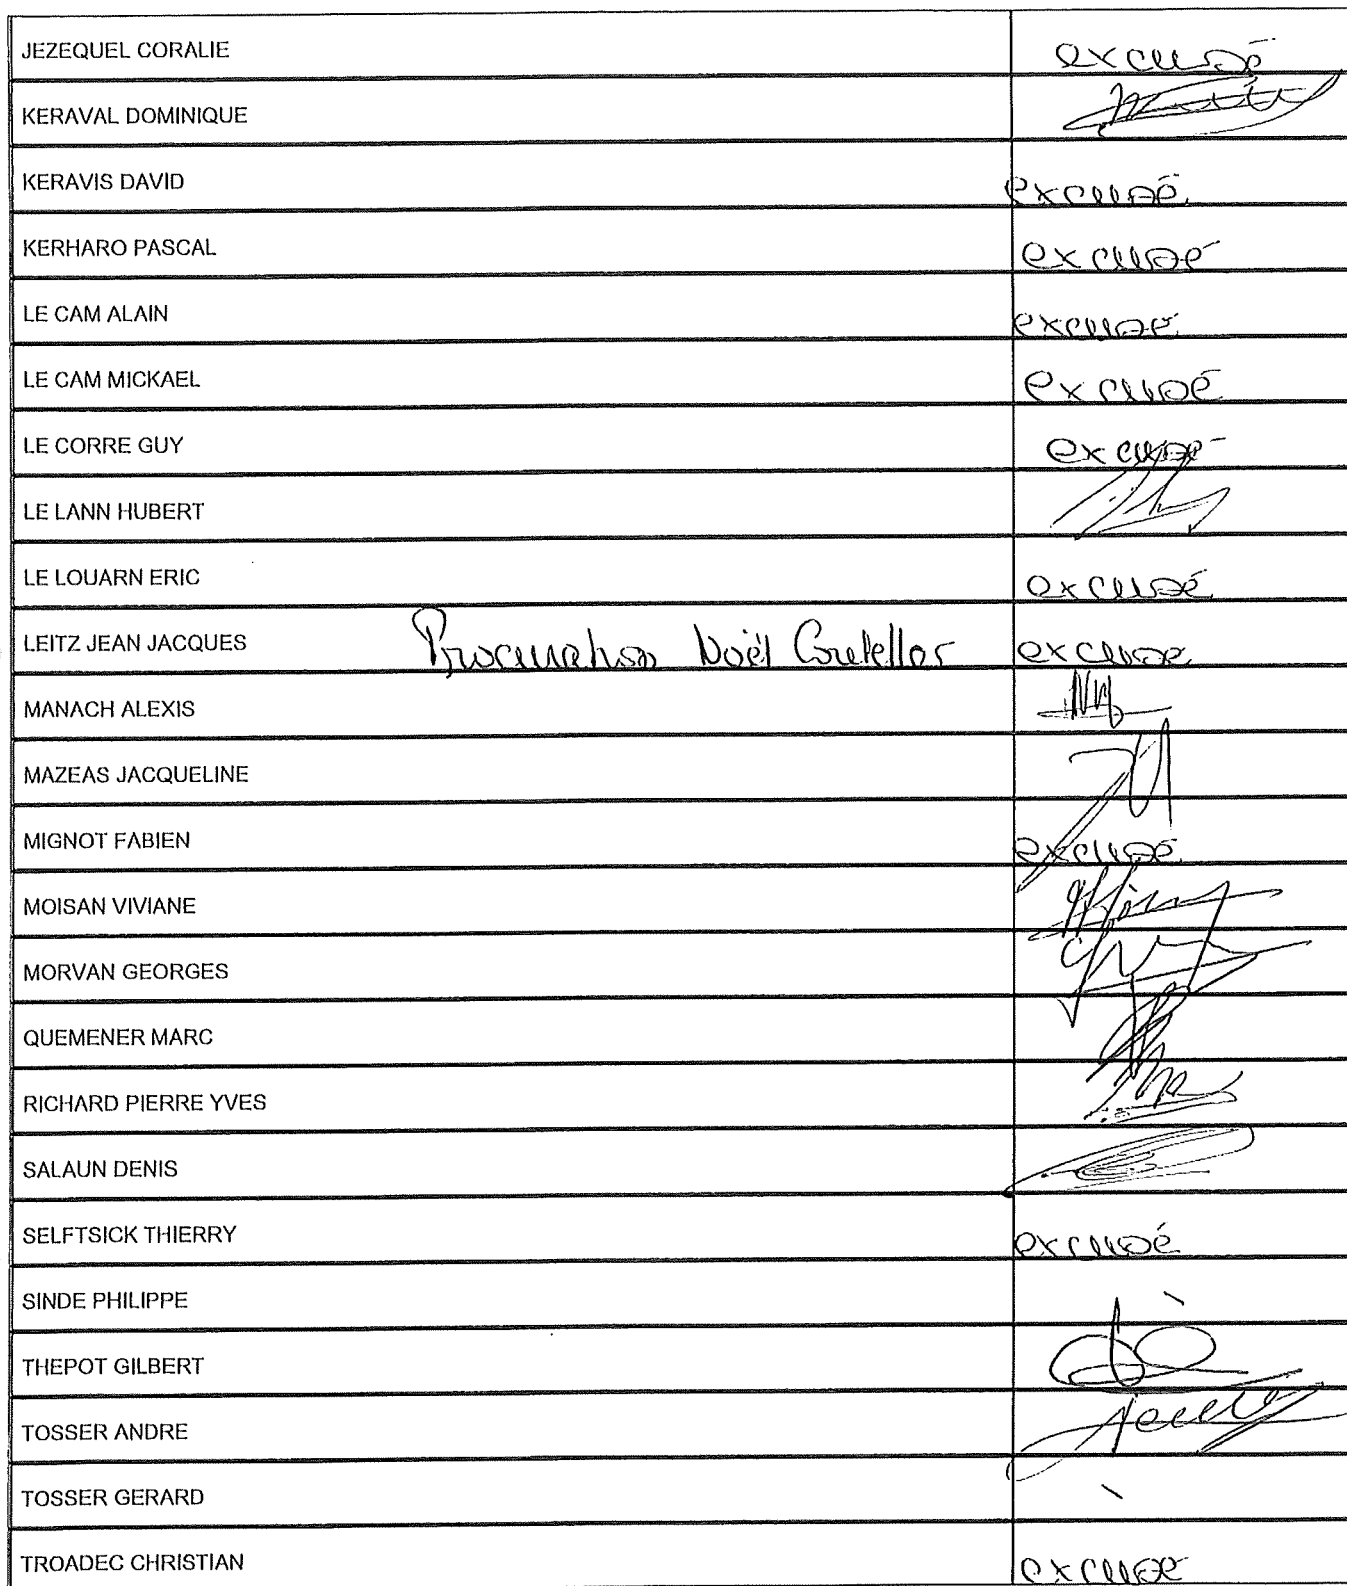 JEZEQUEL CORALIE excusé
KERAVAL DOMINIQUE
KERAVIS DAVID excusé
KERHARO PASCAL excusé
LE CAM ALAIN excusé
LE CAM MICKAEL excusé
LE CORRE GUY excusé
LE LANN HUBERT
LE LOUARN ERIC excusé
LEITZ JEAN JACQUES Procuration Noël excusé
MANACH ALEXIS
MAZEAS JACQUELINE
MIGNOT FABIEN excusé
MOISAN VIVIANE
MORVAN GEORGES
QUEMENER MARC
RICHARD PIERRE YVES
SALAUN DENIS
SELFTSICK THIERRY excusé
SINDE PHILIPPE
THEPOT GILBERT
TOSSER ANDRE
TOSSER GERARD
TROADEC CHRISTIAN excusé